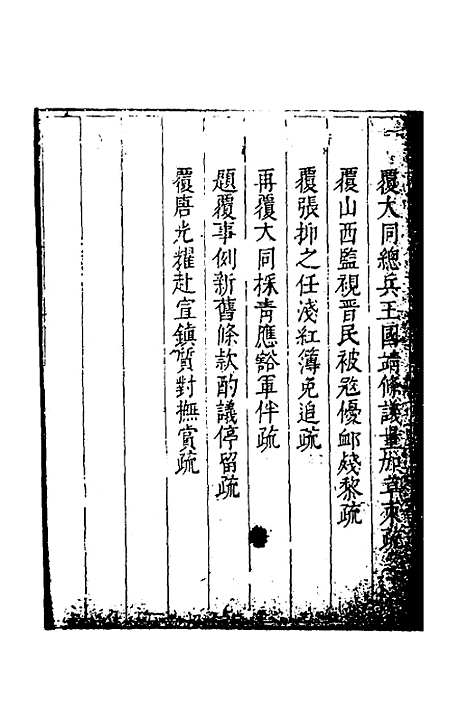 覆大同總兵王國靖條議量加草束疏
覆山西監視晉民被寇優卹殘黎疏
覆張抑之任淺紅簿免追疏
再覆大同採青應豁軍伴疏
題覆事例新舊條款酌議停留疏
覆唐光耀赴宣鎮質對撫賞疏